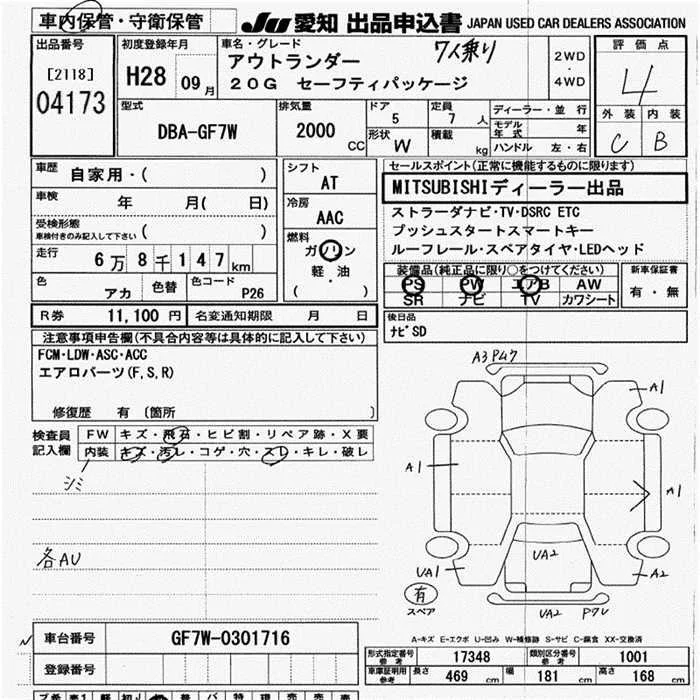 車内保管・守衛保管
JU 愛知 出品申込書 JAPAN USED CAR DEALERS ASSOCIATION
出品番号
[2118]
04173
初度登録年月
H28 09月
車名・グレード
7人乗り
アウトランダー
20G セーフティパッケージ
2WD
・
4WD
評価点
4
外装 内装
C B
型式
DBA-GF7W
排気量
2000 CC
ドア
5
定員
7 人
形状
W
積載
kg
ディーラー・並行
モデル年式 年
ハンドル 左・右
車歴
自家用・( )
車検
年 月( 日)
受検形態
車検付きのみ記入して下さい ( )
走行
6万8千147km
色
アカ
色替
色コード
P26
シフト
AT
冷房
AAC
燃料
ガソリン
軽・油
( )
セールスポイント(正常に機能するものに限ります)
MITSUBISHIディーラー出品
ストラーダナビ・TV・DSRC ETC
プッシュスタートスマートキー
ルーフレール・スペアタイヤ・LEDヘッド
装備品(純正品に限り○をつけてください)
PS PW エアB AW
SR ナビ TV カワシート
新車保証書
有・無
R券 11,100 円
名変通知期限 月 日
後日品
ナビSD
注意事項申告欄(不具合内容等は具体的に記入して下さい)
FCM・LDW・ASC・ACC
エアロパーツ(F,S,R)
修復歴 有 〔箇所 〕
検査員記入欄
FW キズ・飛石・ヒビ割・リペア跡・X要
内装 キズ・汚レ・コゲ・穴・スレ・キレ・破レ
シミ
各AU
A3PムQ
A1
A1
A1
UA2
UA1
A2
UA2
有
スペア
A-キズ E-エクボ U-凹み W-補修跡 S-サビ C-腐食 XX-交換済
車台番号
GF7W-0301716
登録番号
形式指定番号
参考
17348
類別区分番号
参考
1001
車庫証明用
参考
長さ 469 cm
幅 181 cm
高さ 168 cm